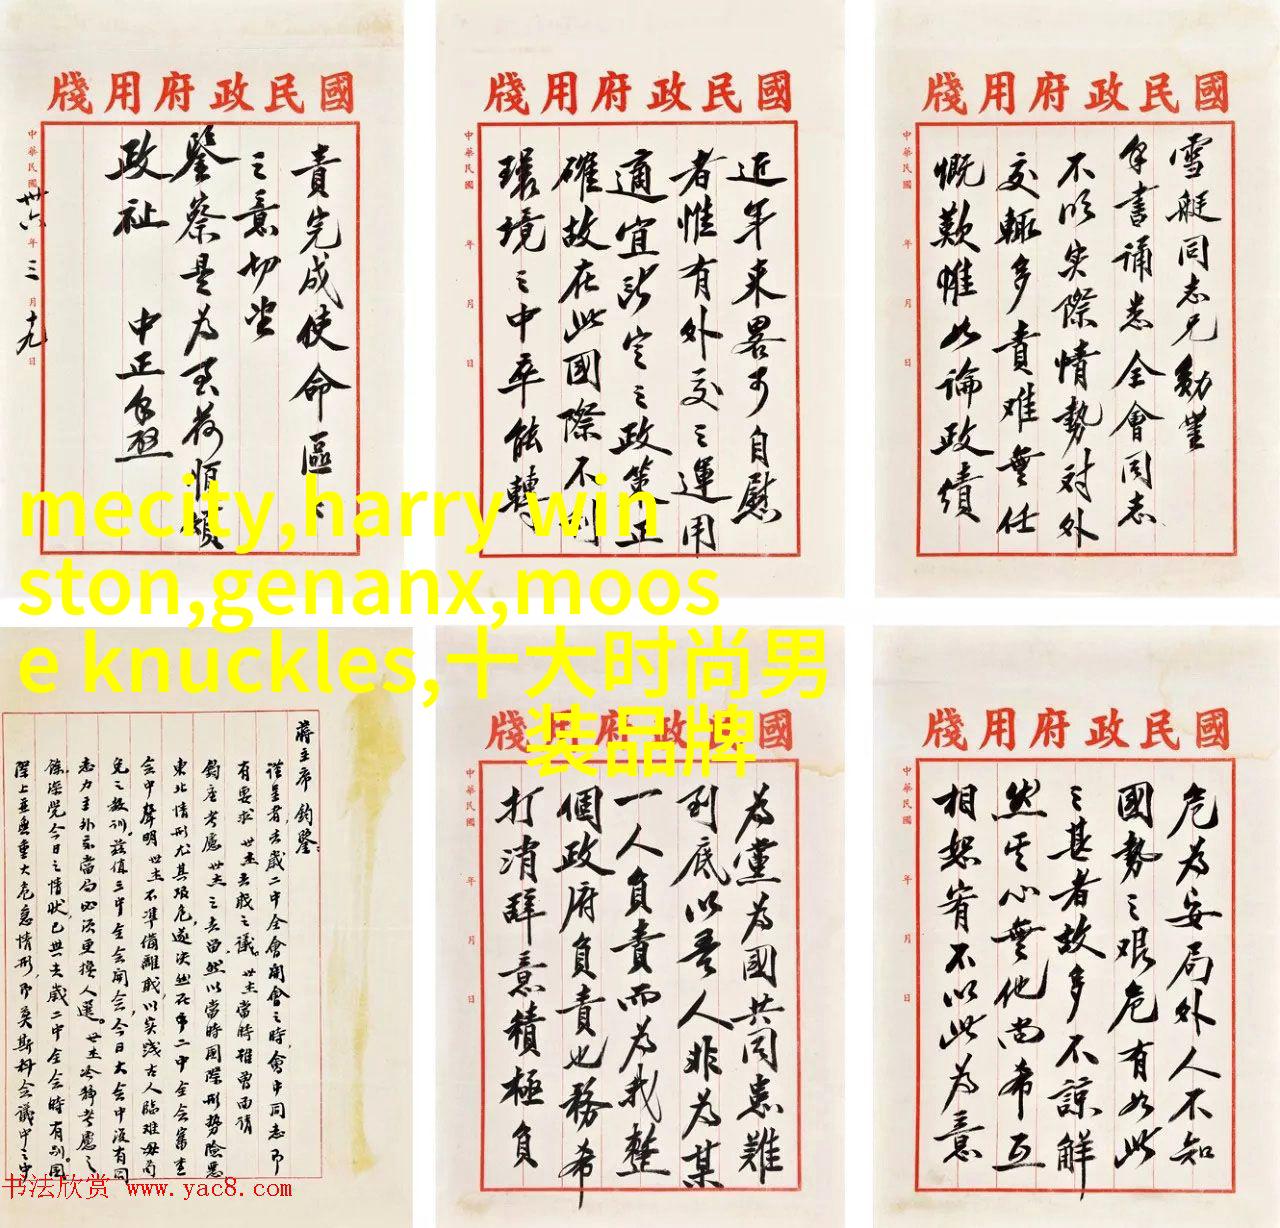 國民政府用牋
雪艇同志兄勛鑒
手書誦悉全會同志
不明實際情勢對外
交輒多責难無任
慨歎惟以論政績
中華民國 年 月 日
國民政府用牋
近年來畧可自慰
者惟有外交之運用
適宜所定之政策正
確故在此國際不利
環境之中卒能轉
中華民國 年 月 日
國民政府用牋
危為安局外人不知
國勢之艰危有如此
之甚者故多不諒解
然其心無他尚希互
相恕宥不以此為意
中華民國 年 月 日
國民政府用牋
為黨為國共同患難
到底以吾人非為某
一人負責而為我整
個政府負責也務希
打消辭意積極負
中華民國 年 月 日
國民政府用牋
責完成使命區區
之意切盼
鑒察是為至荷順頌
政祉 中正手啟
中華民國卅六年三月十九日
蔣主席 鈞鑒：
謹呈者，去歲二中全會開會之時，會中同志即
有要求 世杰去職之議。世杰當時雖曾面請
鈞座考慮世杰之去留，然以當時國際形勢險惡
東北情形尤其艰危，遂決然在第二中全會審查
會中聲明世杰不準備離職，以實踐古人臨難毋苟
免之教訓。茲值三中全會開會，今日大會中復有同
志力主外交當局必須更換人選。世杰冷靜考慮之
餘，深覺今日之情狀，已與去歲二中全會時有別，國
際上並無重大危急情形，即莫斯科會議中之中
mecity,harry win
ston,genanx,moos
e knuckles,十大时尚男
装品牌
书法欣赏 www.yac8.com